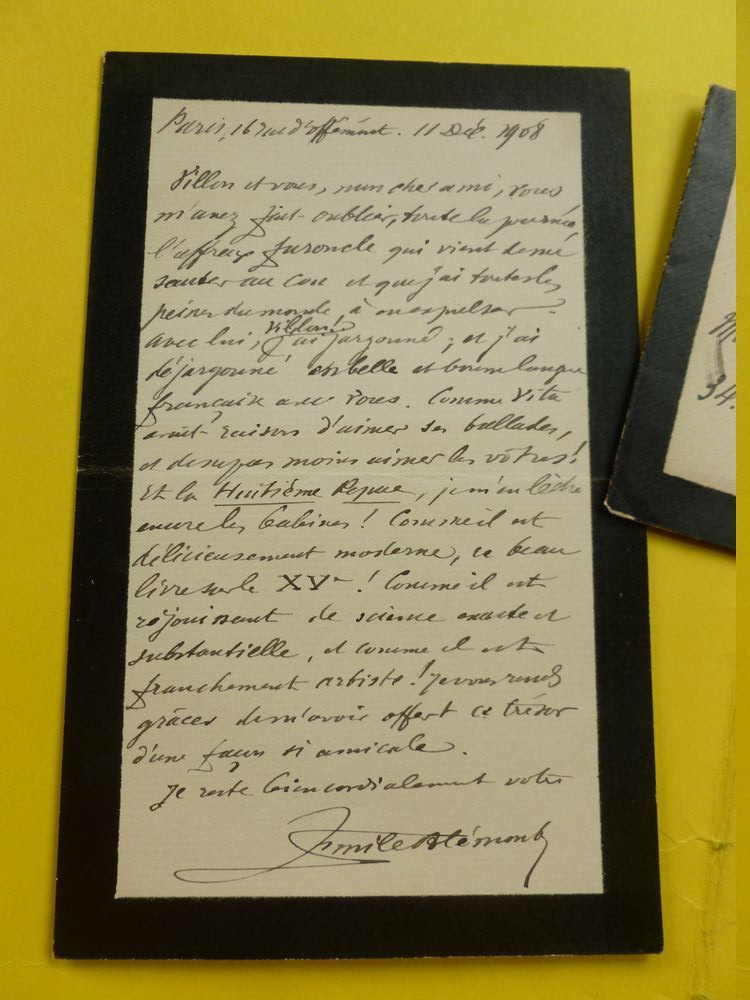 Paris, 16 rue d'offémont. 11 Déc. 1908
Villon et vous, mon cher ami, vous
m'avez fait oublier, toute la journée,
l'affreux furoncle qui vient de me
sauter au cou et que j'ai toutes les
peines du monde à en expulser.
avec lui, Villon, j'ai jargonné ; et j'ai
déjargonné en belle et bonne langue
française avec vous. Comme Vitu
avait raison d'aimer ses ballades,
et de ne pas moins aimer les vôtres !
Et la Huitième Repue, je m'en lèche
encore les babines ! Comme il est
délicieusement moderne, ce beau
livre sur le XVe ! Comme il est
réjouissant de science exacte et
substantielle, et comme il est
franchement artiste ! Je vous rends
grâces de m'avoir offert ce trésor
d'une façon si amicale.
Je reste bien cordialement votre
Emile Blémont
34.